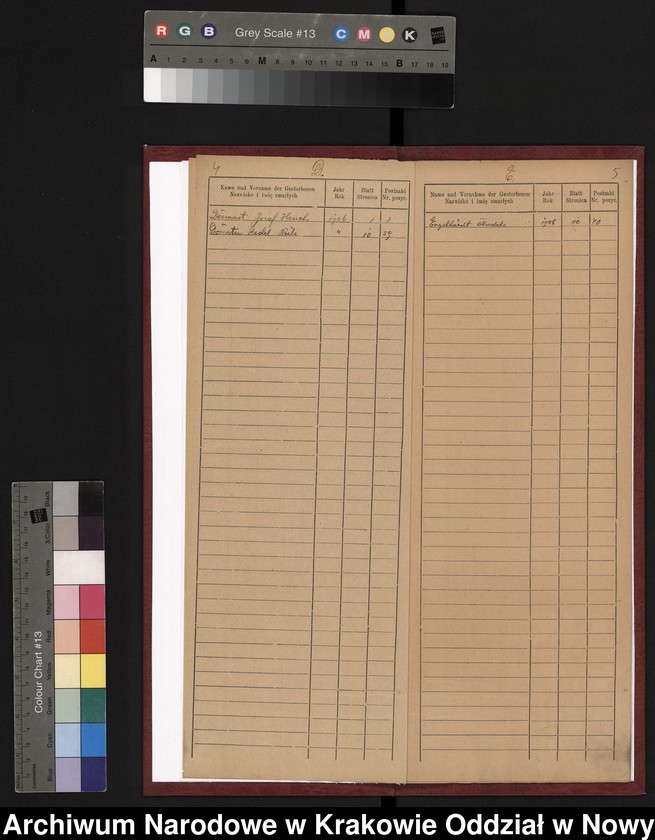 R G B Grey Scale #13 C M Y K
A 1 2 3 4 5 6 M 8 9 10 11 12 13 14 15 B 17 18 19
4 D.
Name und Vorname der Gestorbenen Jahr Blatt Postzahl
Nazwisko i imię zmarłych Rok Stronica Nr. pozyc.
Josef 1906 1 1
" 10 39
E. 5
Name und Vorname der Gestorbenen Jahr Blatt Postzahl
Nazwisko i imię zmarłych Rok Stronica Nr. pozyc.
Engelhardt 1906 10 40
Colour Chart #13
Blue Cyan Green Yellow Red Magenta White 3/Color Black
Archiwum Narodowe w Krakowie Oddział w Nowy